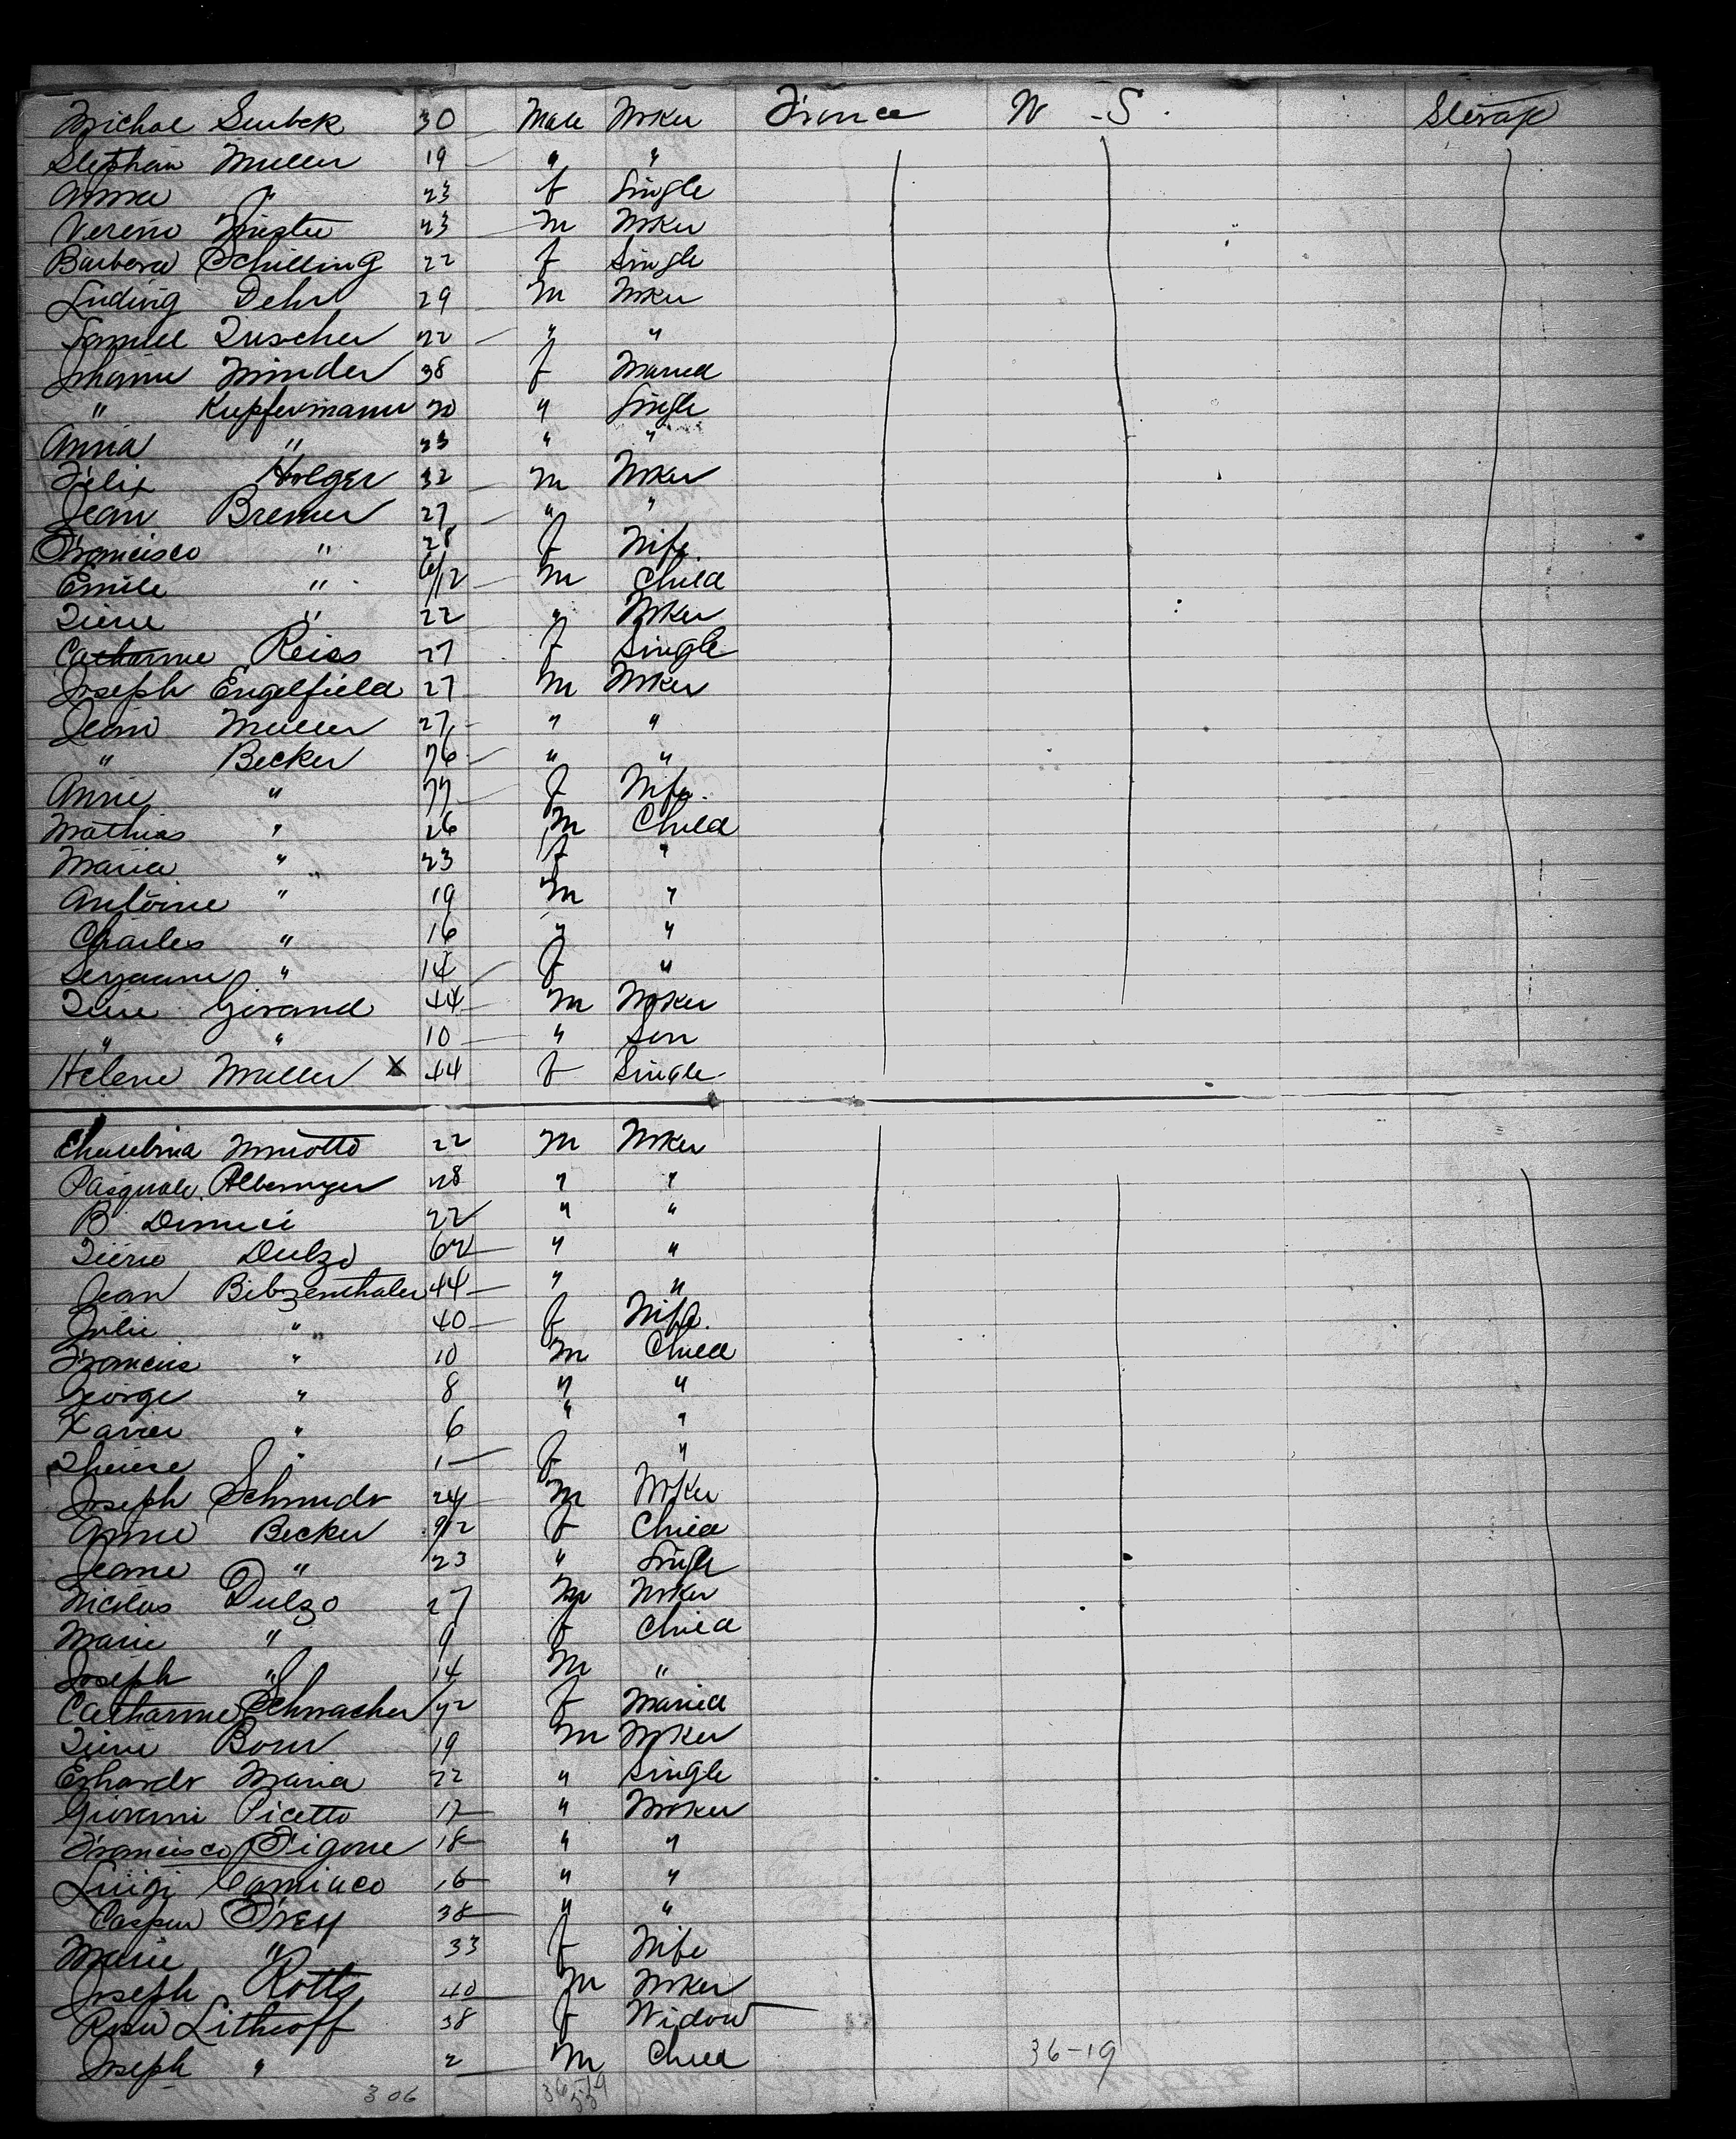 Michae Surbek 30 Male Wker France U S. Sterage
Stephan Muller 19 " "
Anna " 23 f Single
Vereno 23 m Wker
Barbera Schilling 22 f Single
Luding Dehr 29 m Wker
Samuel Tuscher 22 " "
Johanne Minder 38 f Maried
" Kupfermann 20 " Single
Anna " 23 " "
Felix Holger 32 m Wker
Jean Bremer 27 " "
Francisco " 28 f Wife
Emile " 6/12 m Child
Pierre " 22 " Wker
Catharine Reiss 27 f Single
Joseph Engelfield 27 m Wker
Jean Muller 27 " "
" Becker 76 " "
Anne " 77 f Wife
Mathias " 26 m Child
Maria " 23 f "
Antoine " 19 m "
Charles " 16 " "
" 14 f "
Pierre Girand 44 m Wker
" " 10 " Son
Helene Muller X 44 f Single
Miniotto 22 m Wker
Pasquale 28 " "
B 22 " "
Pierre Dulzo 62 " "
Jean Bibzenthaler 44 " "
Julie " 40 f Wife
Francis " 10 m Child
George " 8 " "
Xavier " 6 " "
Therese " 1 f "
Joseph Schmidt 24 m Wker
Anne Becker 9/12 f Child
Jeane " 23 " Single
Nicolas Dulzo 27 m Wker
Marie " 9 f Child
Joseph " 14 m "
Catharine Schmacher 42 f Maried
Pierre Bour 19 m Wker
Erhardt Maria 22 " Single
Giovanni Picetto 17 " Wker
Francisco Pigone 18 " "
Luigi Camiuco 16 " "
Casper Frey 38 " "
Marie " 33 f Wife
Joseph Rotts 40 m Wker
Rosie Litheoff 38 f Widow
Joseph " 2 m Child 36-19
306